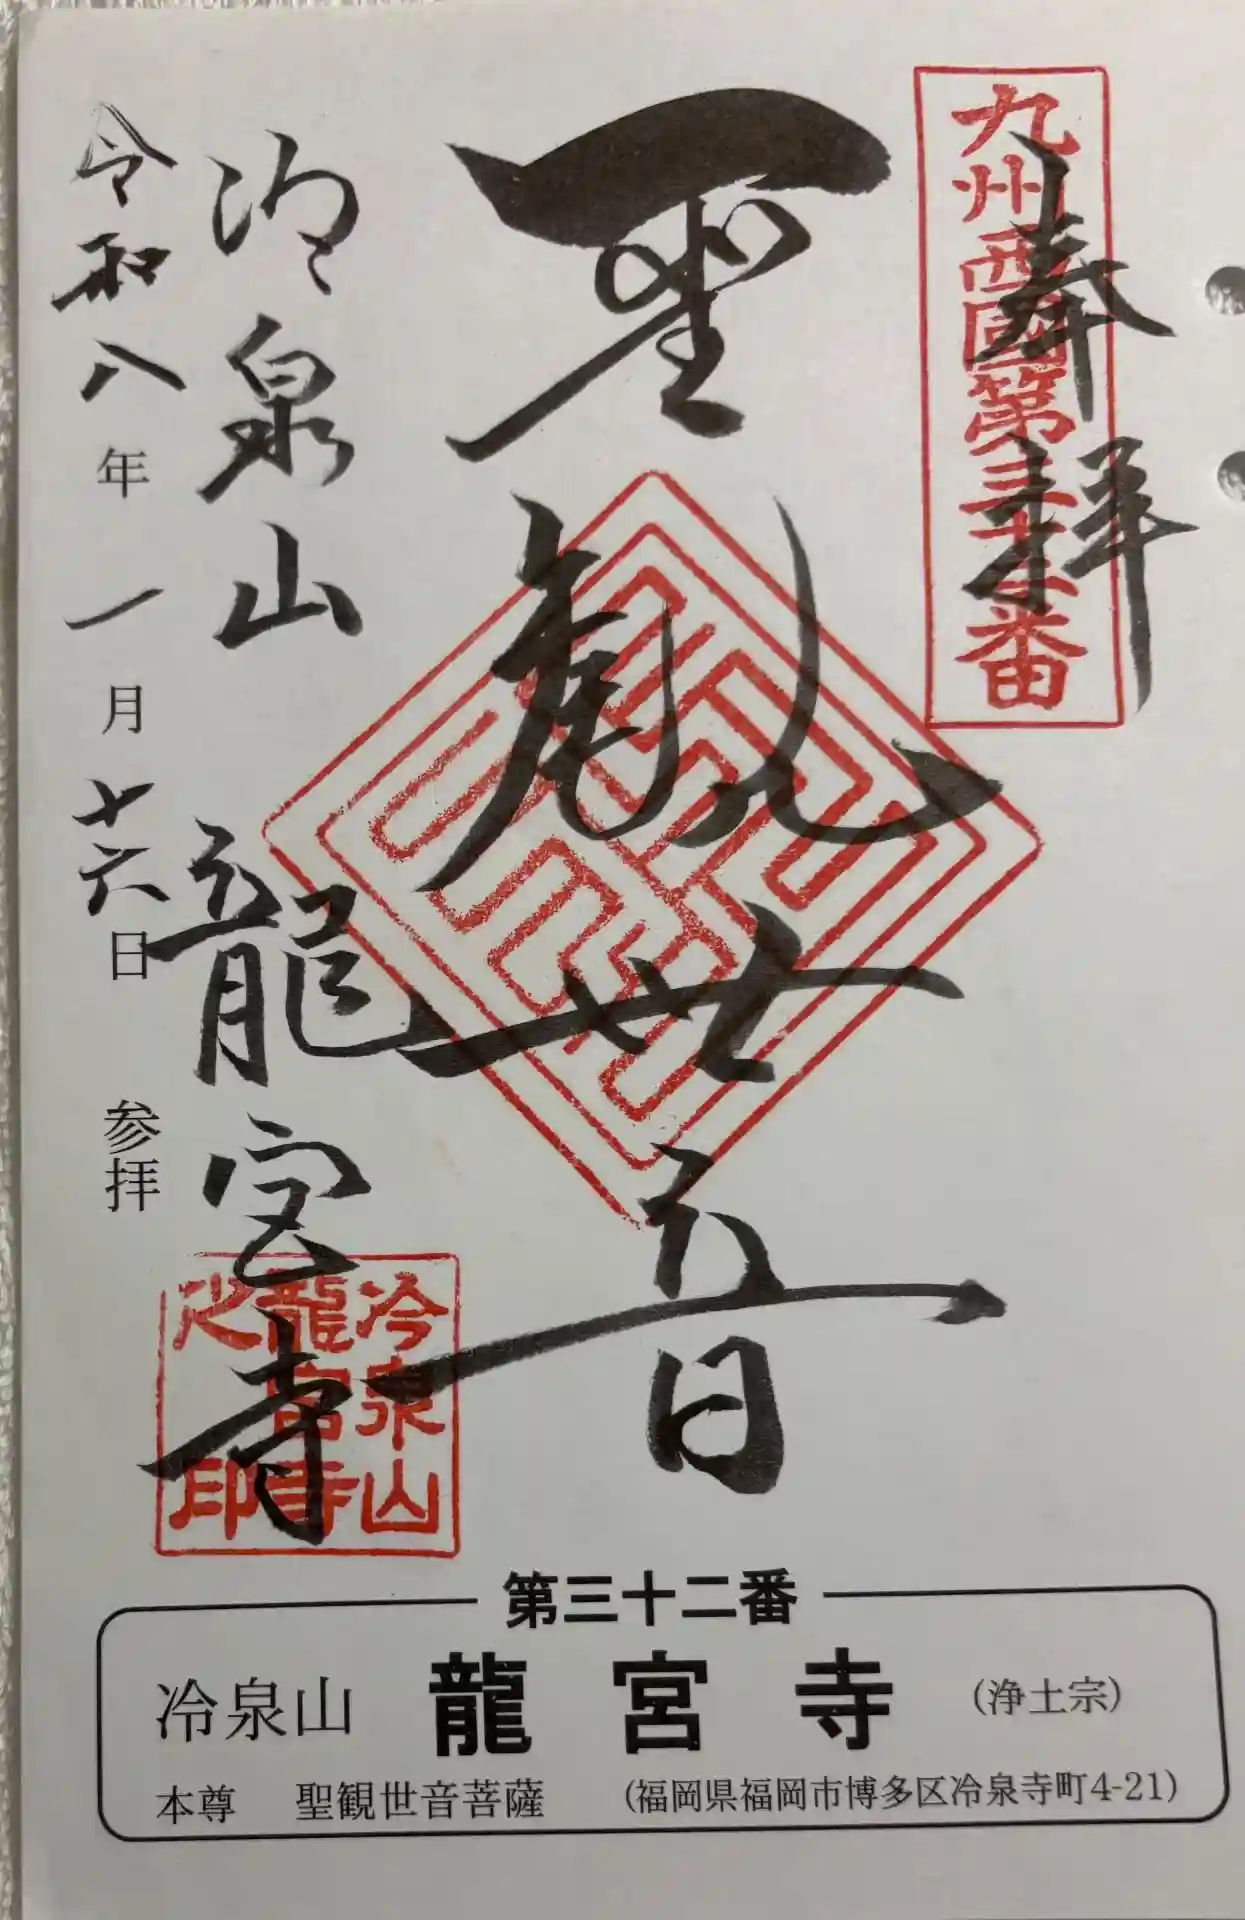 奉拝
九州西國第三十二番
聖観世音
冷泉山 龍宮寺
冷泉山
龍宮寺
之印
令和八年一月十六日 参拝
第三十二番
冷泉山 龍宮寺 (浄土宗)
本尊 聖観世音菩薩 (福岡県福岡市博多区冷泉寺町4-21)